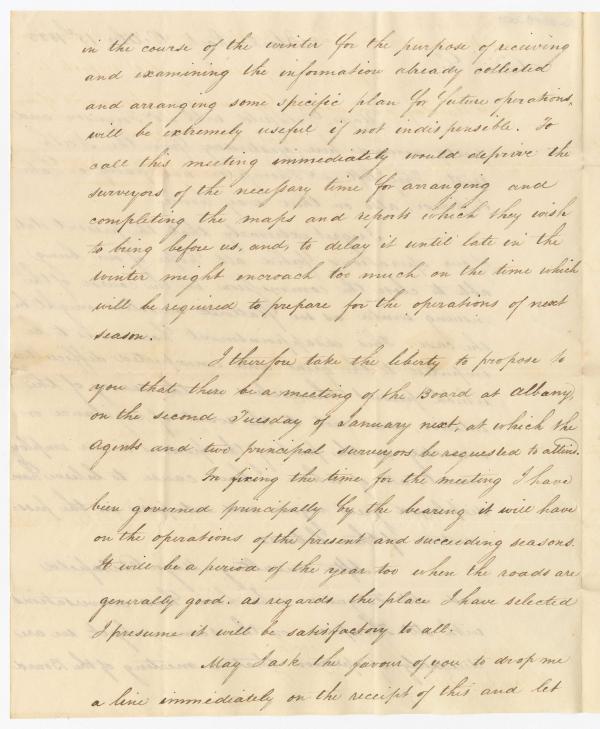 in the course of the winter for the purpose of recieving
and examining the information already collected
and arranging some specific plan for future operations,
will be extremely useful if not indispensible. To
call this meeting immediately would deprive the
surveyors of the necessary time for arranging and
completing the maps and reports which they wish
to bring before us, and, to delay it until late in the
winter might encroach too much on the time which
will be required to prepare for the operations of next
season.
I therefore take the liberty to propose to
you that there be a meeting of the Board at Albany,
on the second Tuesday of January next, at which the
agents and two principal surveyors be requested to attend.
In fixing the time for the meeting I have
been governed principally by the bearing it will have
on the operations of the present and succeeding seasons.
It will be a period of the year too when the roads are
generally good. as regards the place I have selected
I presume it will be satisfactory to all.
May I ask the favour of you to drop me
a line immediately on the receipt of this and let